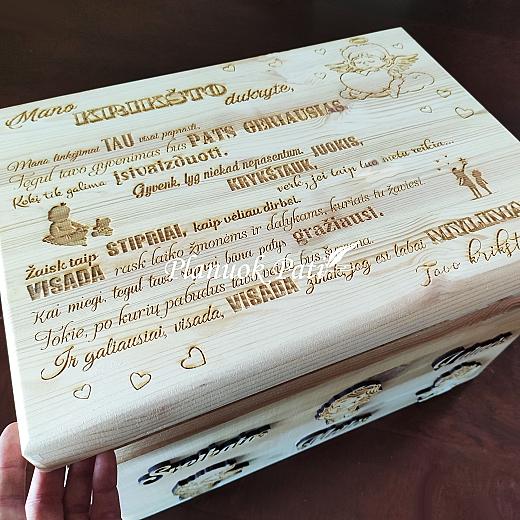 Mano KRIKŠTO dukryte,
Mano linkėjimai TAU visai paprasti,
Tegul tavo gyvenimas bus PATS GERIAUSIAS
Kokį tik galima įsivaizduoti.
Gyvenk, lyg niekad nepasentum. JUOKIS,
KRYKŠTAUK, verk, jei taip tuo metu reikia...
Žaisk taip STIPRIAI, kaip vėliau dirbsi.
VISADA rask laiko žmonėms ir dalykams, kuriais tu žaviesi.
Kai miegi, tegul tavo būna patys gražiausi.
Tokie, po kurių pabudus tavo bus
Ir galiausiai, visada, VISADA žinok, jog esi labai MYLIMA
Tavo krikšt
Planuok Pati
Sveikatos